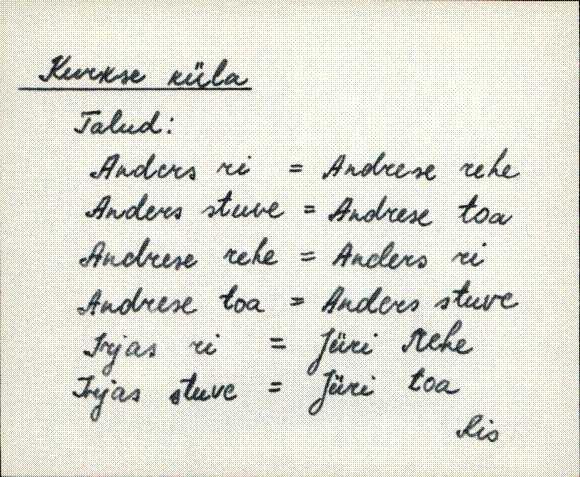 Kurkse küla
Talud:
Anders ri = Andrese rehe
Anders stuve = Andrese toa
Andrese rehe = Anders ri
Andrese toa = Anders stuve
Irjas ri = Jüri Rehe
Irjas stuve = Jüri toa